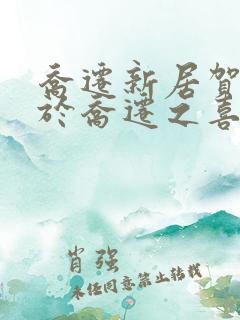 喬遷新居賀
於喬遷之喜
肖强
未任同意禁止转载